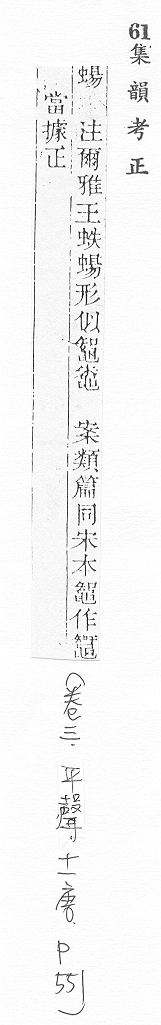 61集韻考正
蝪 注爾雅王蛈蝪形似鼅鼄 案類篇同宋本鼅作
當據正
(卷三.平聲.十一唐.P55)